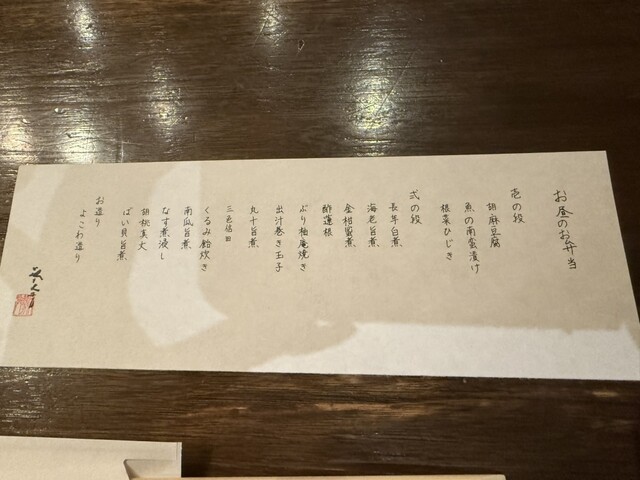 お昼のお弁当
壱の段
胡麻豆腐
魚の南蛮漬け
根菜ひじき
弐の段
長芋白煮
海老旨煮
金柑蜜煮
酢蓮根
ぶり柚庵焼き
出汁巻き玉子
丸十旨煮
三色信田
くるみ飴炊き
南瓜旨煮
なす煮浸し
胡桃真丈
ばい貝旨煮
お造り
よこわ造り